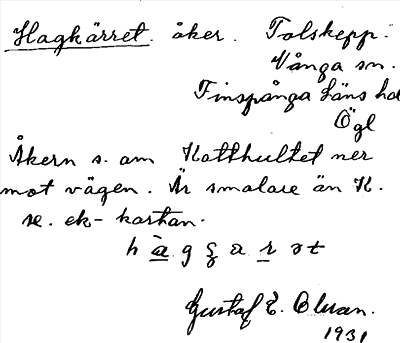 Hagkärret. åker. Tolskepp.
Vånga sn.
Finspånga läns hd
Ögl
Åkern s. om Katthultet ner
mot vägen. Är smalare än K.
se. ek-kartan.
Gustaf E. Olson.
1931